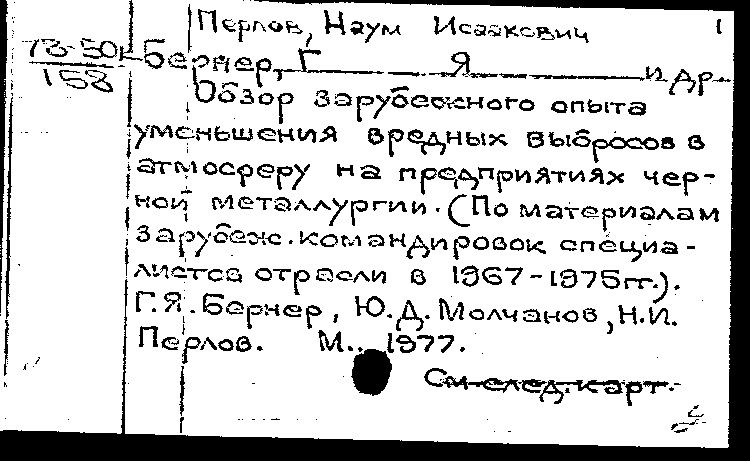 Перлов, Наум Исаакович 1
78-50
158
Бернер, Г Я и др.
Обзор зарубежного опыта
уменьшения вредных выбросов в
атмосферу на предприятиях чер-
ной металлургии. (По материалам
зарубеж. командировок специа-
листов отрасли в 1967-1975 гг.).
Г.Я. Бернер, Ю.Д. Молчанов, Н.И.
Перлов. М., 1977.
См след. карт.